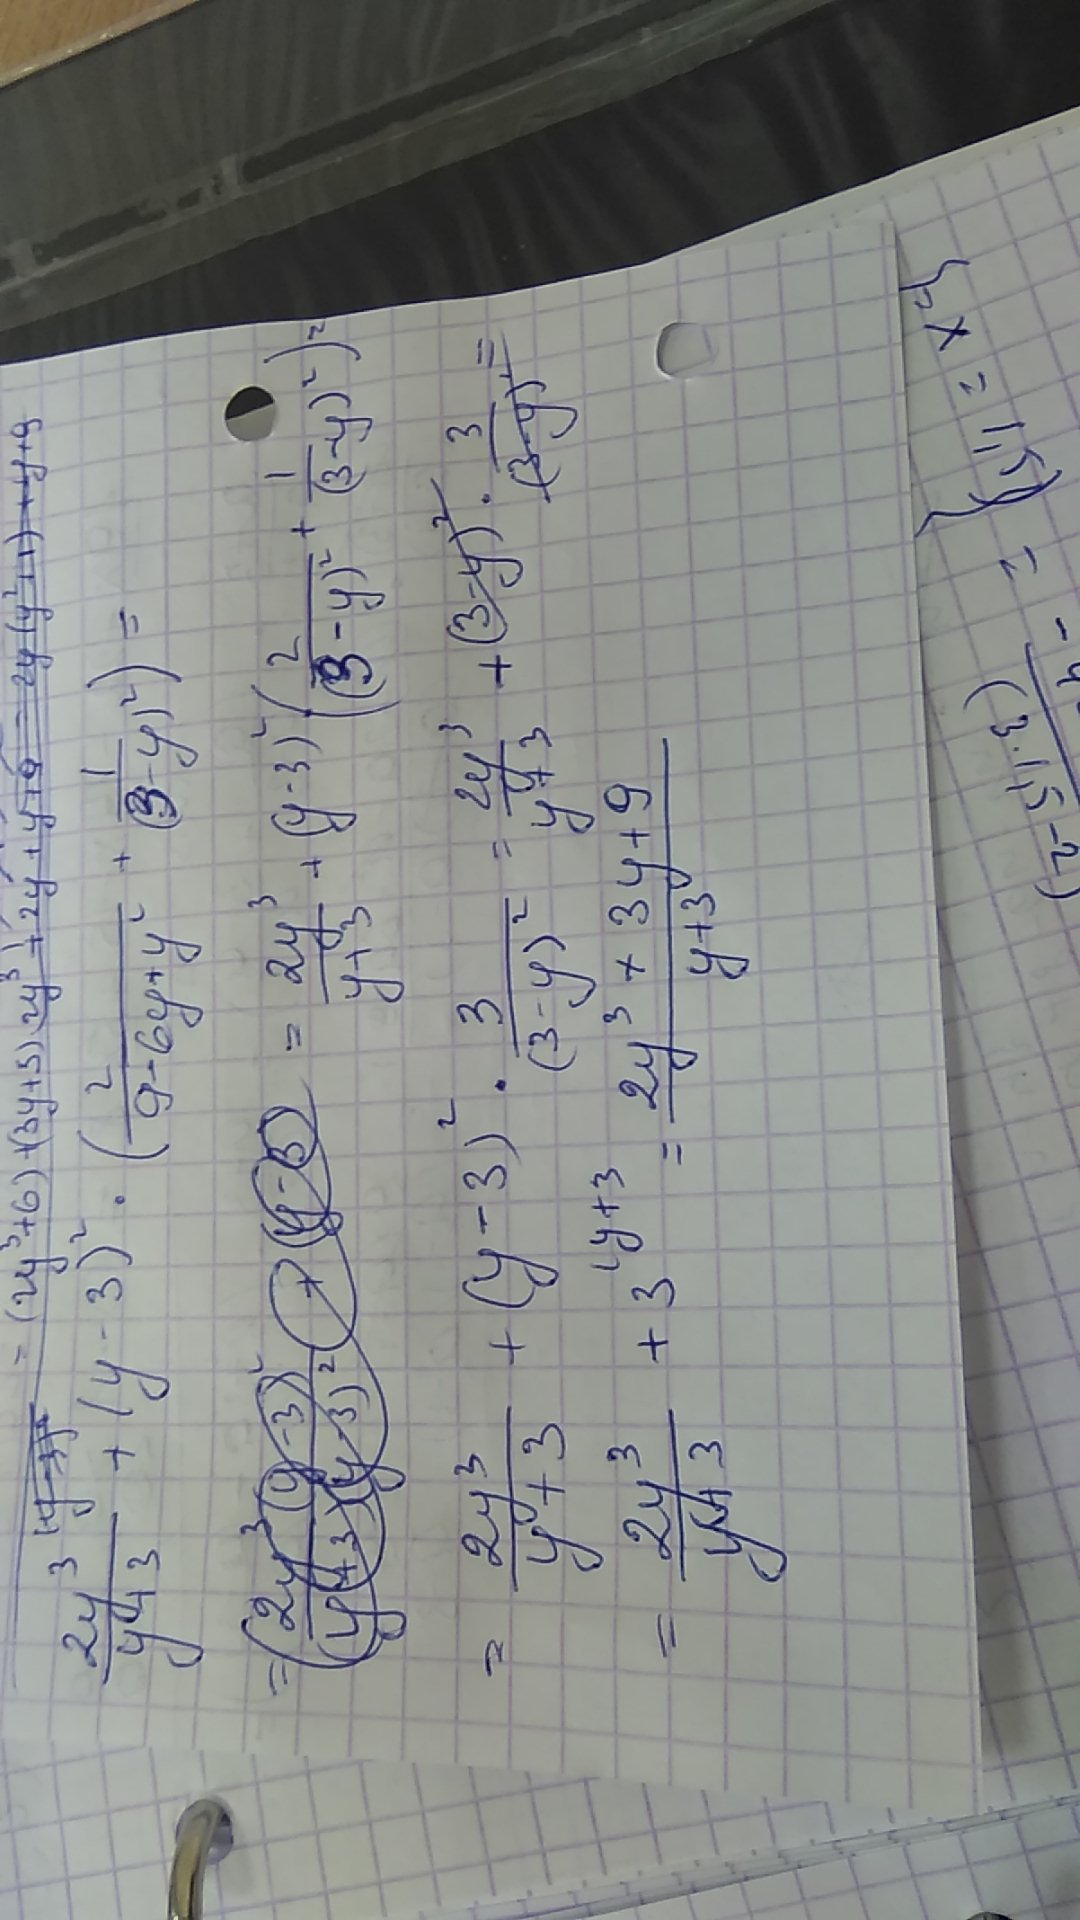 = (2y³+6)+(3y+3) 2y³+2y+y+9 = 2y(y²+1)+y+9
2y³/(y+3) + (y-3)² · (2/(9-6y+y²) + 1/(3-y)²) =
= (2y³(y-3)²/(y+3)(y-3)² + (y-3) = 2y³/(y+3) + (y-3)² (2/(3-y)² + 1/(3-y)²)²
= 2y³/(y+3) + (y-3)² · 3/(3-y)² = 2y³/(y+3) + (3-y)² · 3/(3-y)² =
= 2y³/(y+3) + 3 y+3 = (2y³+3y+9)/(y+3)
x = 1,5
=
(3·1,5-2)